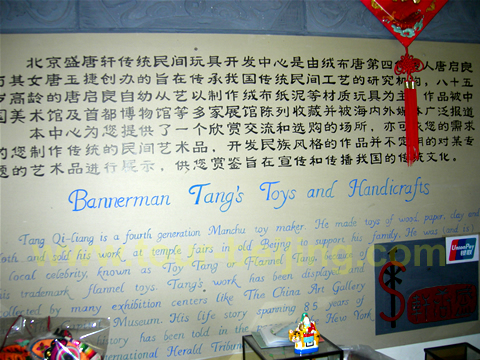 北京盛唐轩传统民间玩具开发中心是由绒布唐第四 人唐启良
其女唐玉捷创办的旨在传承我国传统民间工艺的研究机构，八十五
高龄的唐启良自幼从艺以制作绒布纸泥等材质玩具为主 作品被中
国美术馆及首都博物馆等多家展馆陈列收藏并被海内外媒体广泛报道
本中心为您提供了一个欣赏交流和选购的场所，亦可 您的需求
您制作传统的民间艺术品，开发民族风格的作品并不定期的对某专
题的艺术品进行展示，供您赏鉴旨在宣传和传播我国的传统文化。
Bannerman Tang's Toys and Handicrafts
Tang Qi-liang is a fourth generation Manchu toy maker. He made toys of wood, paper, clay and
cloth and sold his work at temple fairs in old Beijing to support his family. He was (and is)
local celebrity, known as Toy Tang or Flannel Tang, after
his trademark flannel toys. Tang's work has been displayed and
collected by many exhibition centers like The China Art Gallery
Museum. His life story spanning 85 years of
history has been told in the New York
International Herald Tribune
UnionPay
银联